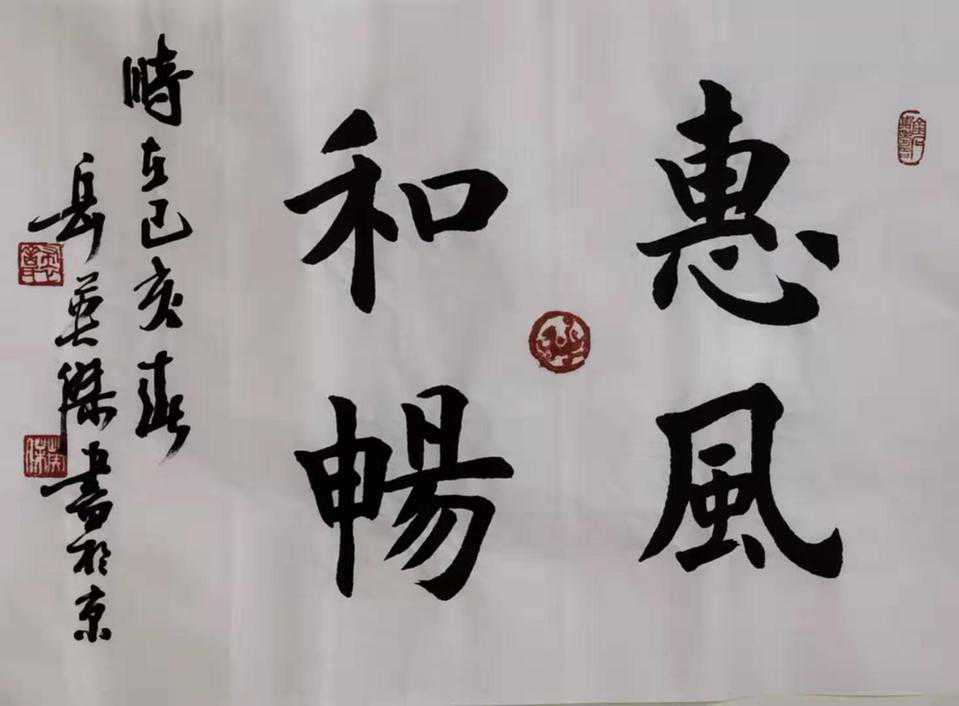 惠風
和暢
時在己亥春
岳英傑書於京